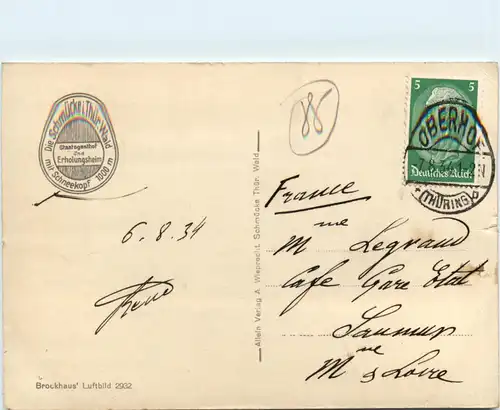 Die Schmücke i. Thür. Wald
Staatsgasthof
und
Erholungsheim
mit Schneekopf 1000 m
6.8.34
Brockhaus' Luftbild 2932
Allein Verlag A. Wieprecht, Schmücke Thür. Wald
5 5
Deutsches Reich
OBERHOF
(THÜRING)
b
France
Mme Legrand
Cafe Gare Etat
Saumur
Mne & Loire